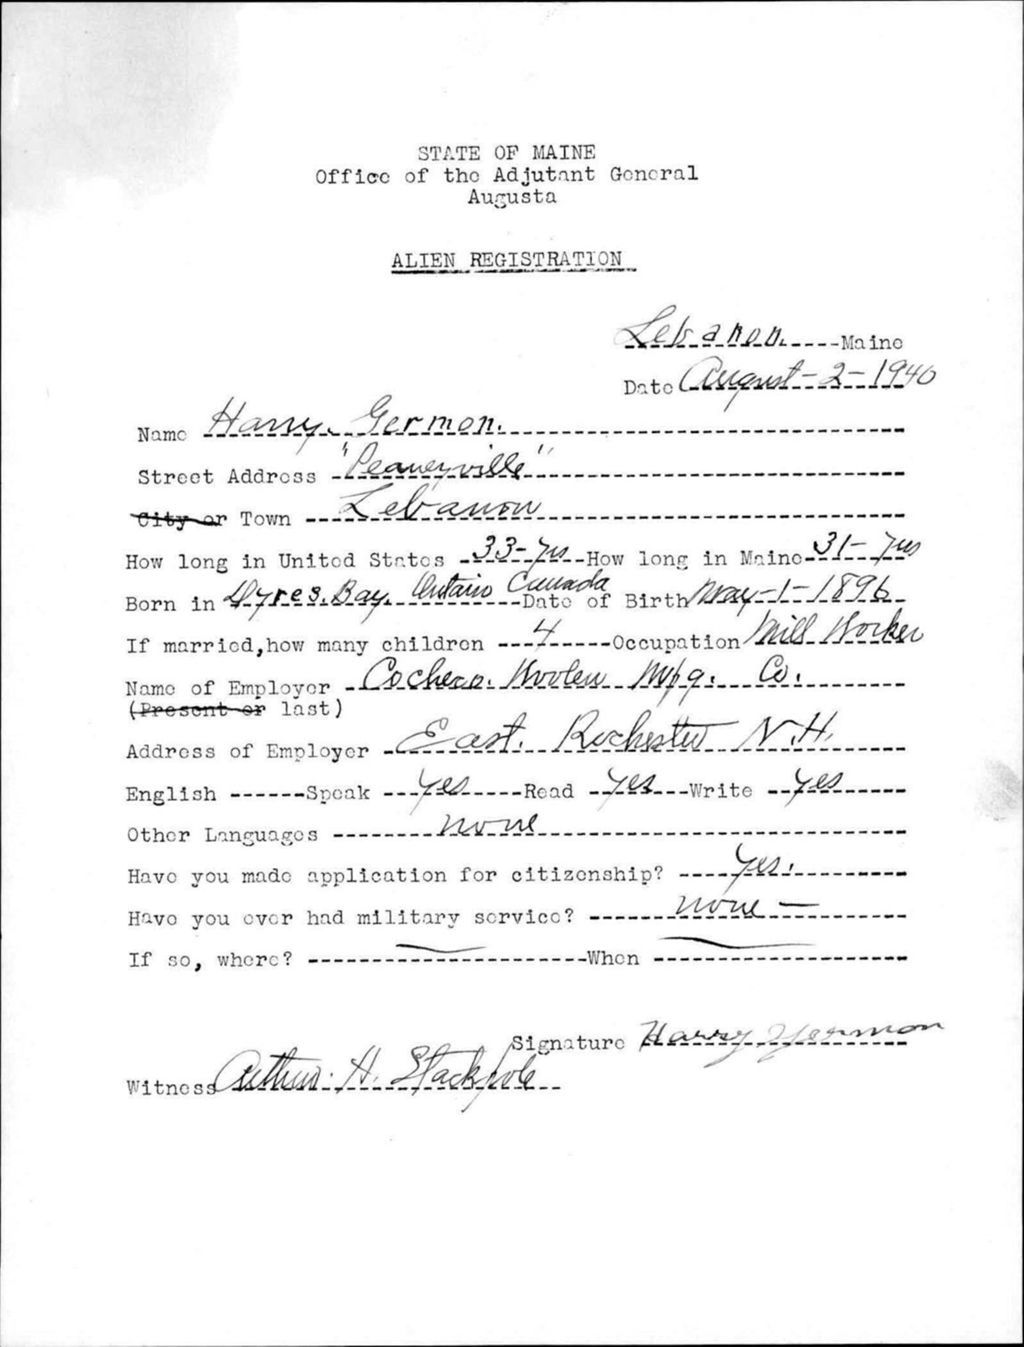 STATE OF MAINE
Office of the Adjutant General
Augusta
ALIEN REGISTRATION
Lebanon Maine
Date August-2-1940
Name Harry Germon.
Street Address "Peaneyville"
City or Town Lebanon
How long in United States 33-yrs How long in Maine 31-yrs
Born in Dyres Bay. Ontario Canada Date of Birth May-1-1896
If married, how many children 4 Occupation Mill Worker
Name of Employer Cocheco. Woolen Mfg. Co.
(Present or last)
Address of Employer East. Rochester N.H.
English Speak yes Read yes Write yes
Other Languages none
Have you made application for citizenship? yes.
Have you ever had military service? none —
If so, where? When
Signature Harry Germon
Witness Arthur. H. Stackpole